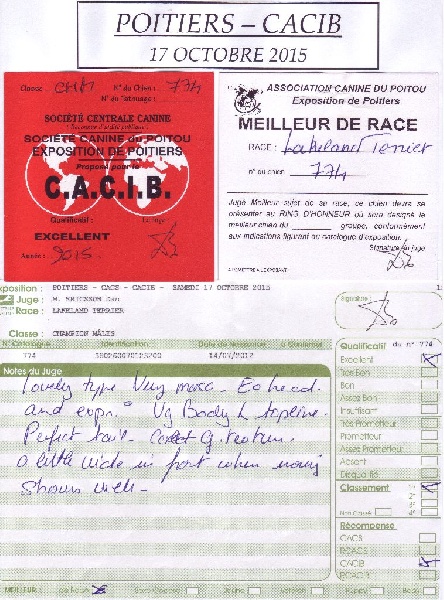 POITIERS – CACIB
17 OCTOBRE 2015
Classe CHM N° du Chien: 774
N° du Tatouage:
SOCIÉTÉ CENTRALE CANINE
SOCIÉTÉ CANINE DU POITOU
EXPOSITION DE POITIERS
Proposé pour le
C.A.C.I.B.
Qualificatif :
Le Juge
EXCELLENT
Année : 2015
ASSOCIATION CANINE DU POITOU
Exposition de Poitiers
MEILLEUR DE RACE
RACE : Lakeland Terrier
n° du chien 774
Jugé Meilleur sujet de sa race, ce chien devra se
présenter au RING D'HONNEUR où sera désigné le
meilleur chien du groupe, conformément
aux indications figurant au catalogue d'exposition.
Signature du juge
A REMETTRE A L'EXPOSANT
xposition : POITIERS - CACS - CACIB - SAMEDI 17 OCTOBRE 2015
Juge : M. ERICSSON Dav
Race : LAKELAND TERRIER
Signature :
Classe : CHAMPION MÂLES
N° Catalogue Identification Date de Naissance
774 14/03/2012
Qualificatif du n° 774
Notes du Juge
Lovely type Very masc. Ex head
and expr. Vg Body & topline.
Perfect tail. Correct
a little wide in front when moving
Shown well
Excellent
Très Bon
Bon
Assez Bon
Insuffisant
Très Prometteur
Prometteur
Assez Prometteur
Absent
Disqualifié
Classement 1°
2°
3°
Non Classé 4°
Récompense
CACS
RCACS
CACIB
RCACIB
MEILLEUR : de Race Sexe Opposé Jeune Vétéran Puppy Baby